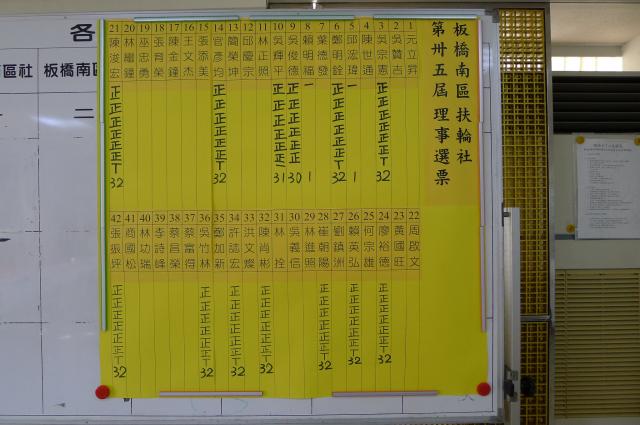 各
南區社
板橋南區
二
板橋南區 扶輪社
第卅五屆 理事選票
1 元立昇
2 吳贊吉
3 吳宗憲 正正正正正正T 32
4 陳世通
5 邱宏瑋 一 1
6 鄭明銓 正正正正正正T 32
7 葉德發
8 賴明福 一 1
9 吳俊德 正正正正正正 30
10 吳輝平 正正正正正正一 31
11 林正照
12 邱慶宗
13 簡榮坤
14 官彥均 正正正正正正T 32
15 張添美
16 王文杰
17 陳金鐘
18 張育榮
19 巫忠勇
20 林繼鐘
21 陳浚宏 正正正正正正T 32
22 周啟文
23 黃國旺
24 廖裕德 正正正正正正T 32
25 何宗雄
26 賴英弘 正正正正正正T 32
27 劉鎮洲
28 崔朝陽 正正正正正正T 32
29 林進照
30 吳義信
31 林拴
32 陳肖彬 正正正正正正T 32
33 洪文燦
34 許誌宏 正正正正正正T 32
35 鄭加新
36 吳竹林 正正正正正正T 32
37 蔡富得
38 蔡昌榮
39 李詩峰
40 林功瑞
41 商國松
42 張振坪 正正正正正正T 32